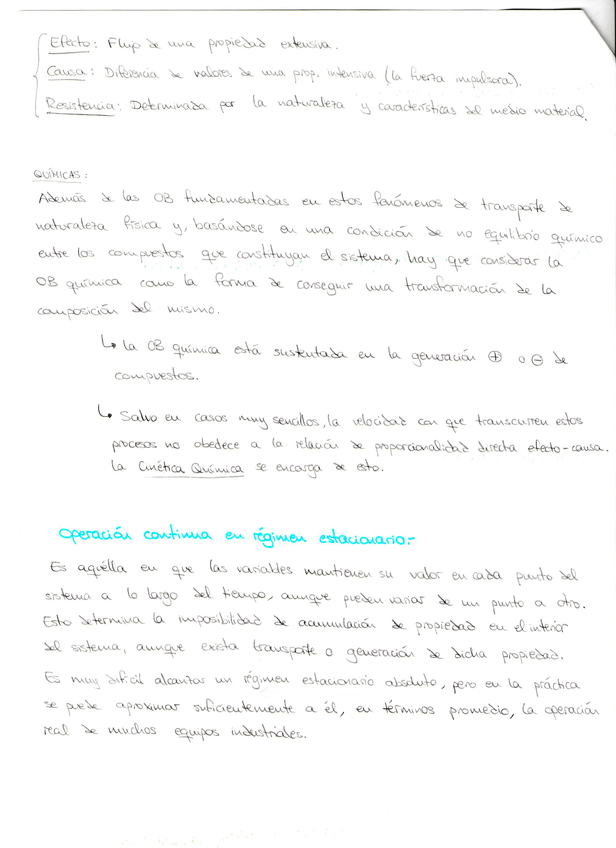 Efecto: Flujo de una propiedad extensiva.
Causa: Diferencia de valores de una prop. intensiva (la fuerza impulsora).
Resistencia: Determinada por la naturaleza y características del medio material.
QUÍMICAS:
Además de las OB fundamentadas en estos fenómenos de transporte de
naturaleza física y, basándose en una condición de no equlibrio químico
entre los compuestos que constituyan el sistema, hay que considerar la
OB química como la forma de conseguir una transformación de la
composición del mismo.
↳ La OB química está sustentada en la generación ⊕ o ⊖ de
compuestos.
↳ Salvo en casos muy sencillos, la velocidad con que transcurren estos
procesos no obedece a la relación de proporcionalidad directa efecto-causa.
La Cinética Química se encarga de esto.
Operación continua en régimen estacionario.-
Es aquélla en que las variables mantienen su valor en cada punto del
sistema a lo largo del tiempo, aunque puedan variar de un punto a otro.
Esto determina la imposibilidad de acumulación de propiedad en el interior
del sistema, aunque exista transporte o generación de dicha propiedad.
Es muy difícil alcanzar un régimen estacionario absoluto, pero en la práctica
se puede aproximar suficientemente a él, en términos promedio, la operación
real de muchos equipos industriales.